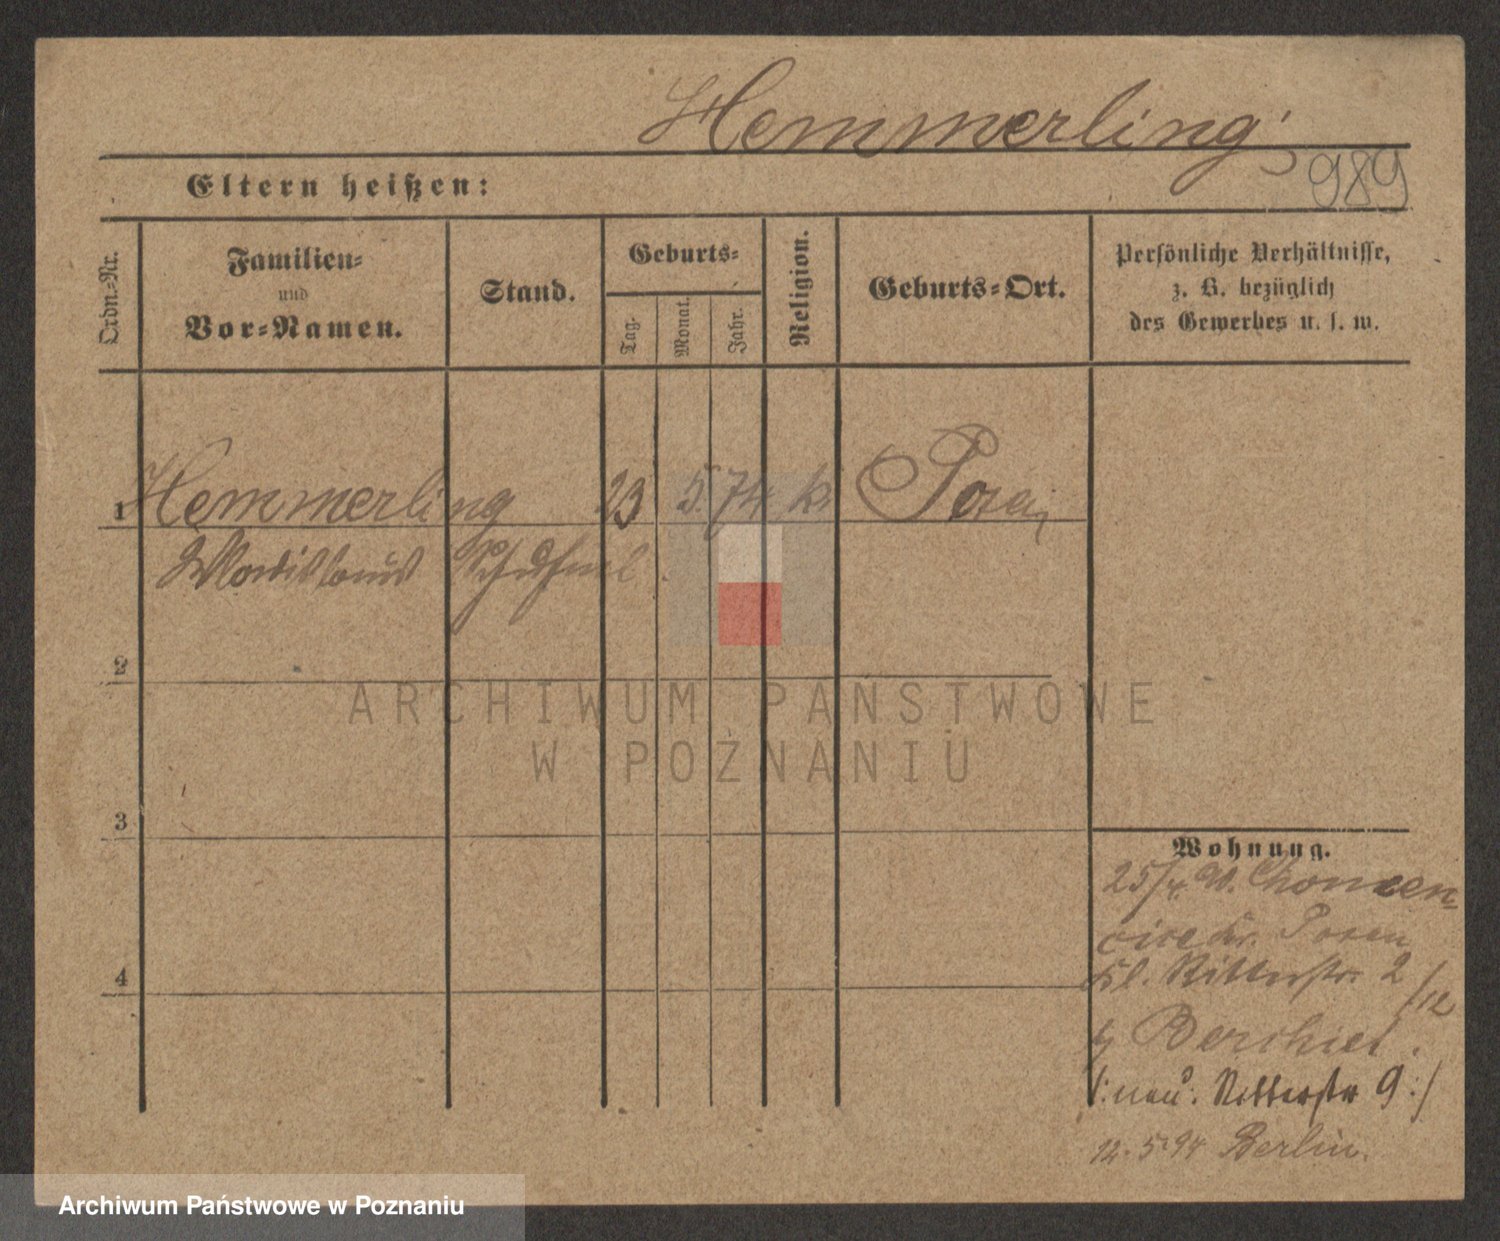 Hemmerling
989
Eltern heißen:
Ordn.-Nr.
Familien-
und
Vor-Namen.
Stand.
Geburts-
Tag.
Monat.
Jahr.
Religion.
Geburts-Ort.
Persönliche Verhältnisse,
z. B. bezüglich
des Gewerbes u. s. w.
1 Hemmerling 23 5. 74 k. Posen
Wladislaus
2
3
4
Wohnung.
25/4. W.
Posen
Kl. Ritterstr. 2
/12
b/
(: neu: Ritterstr 9 :)
12. 5. 94 Berlin.
ARCHIWUM PAŃSTWOWE
W POZNANIU
Archiwum Państwowe w Poznaniu